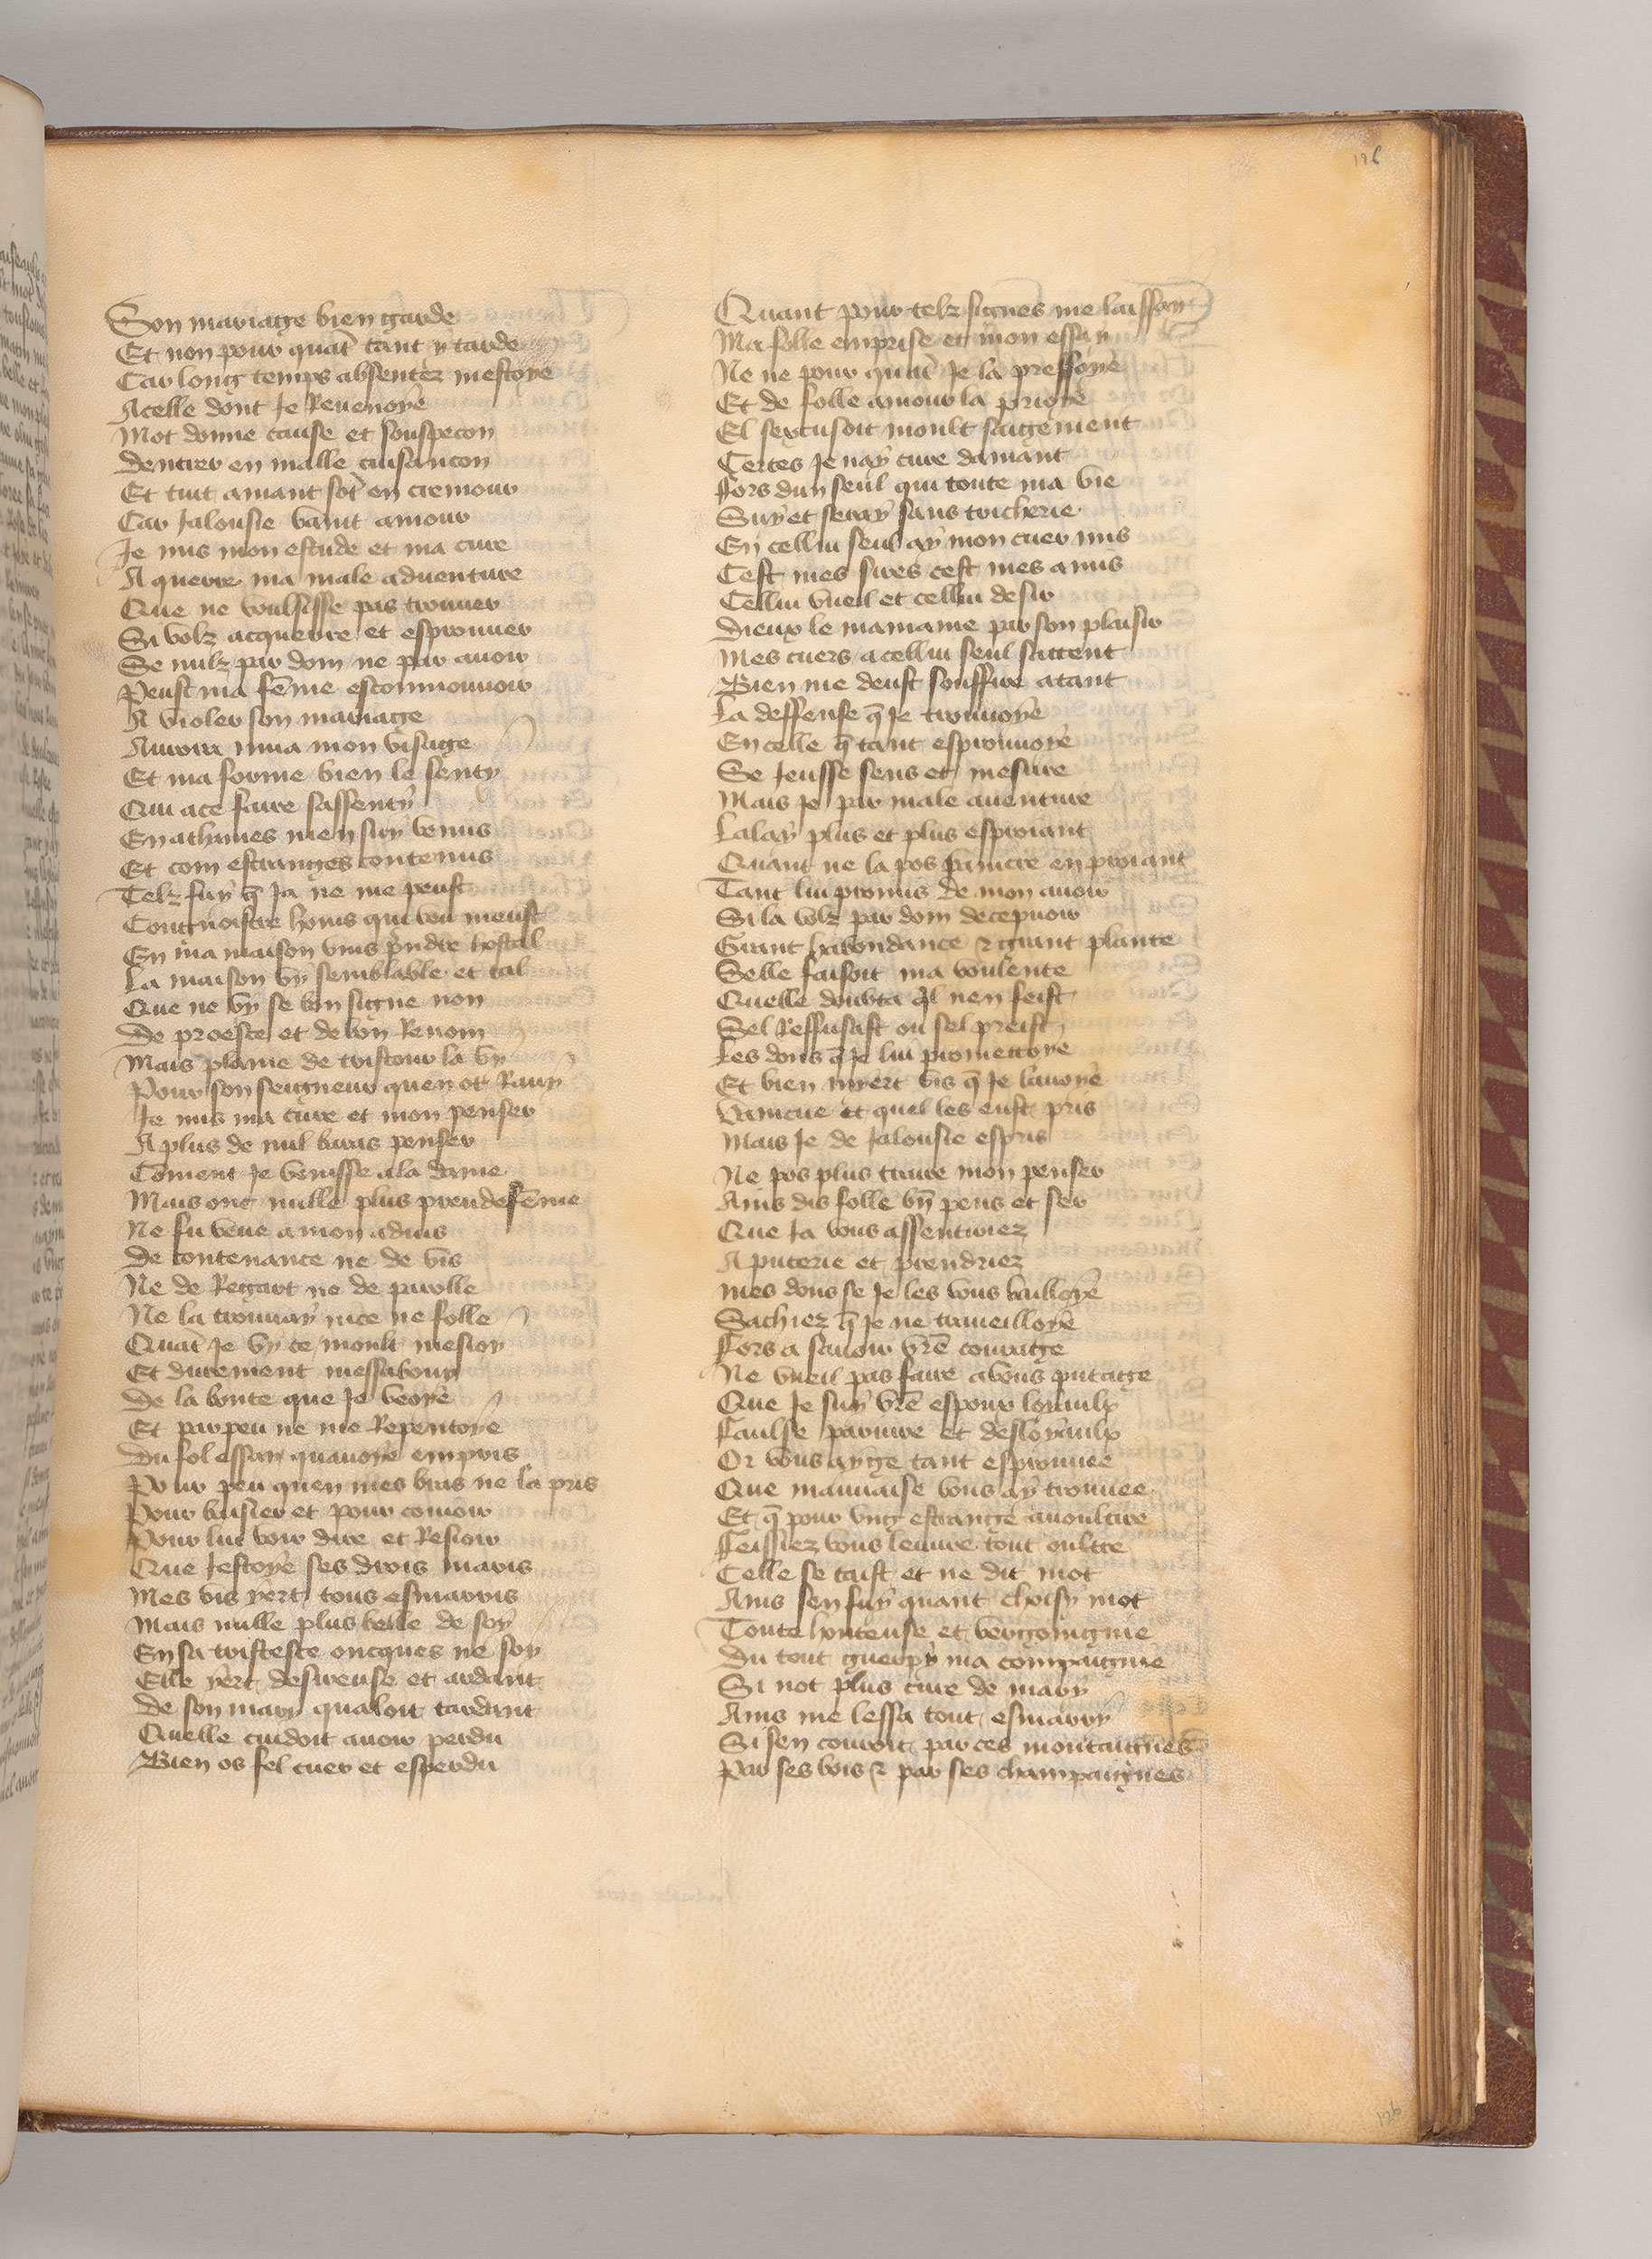 126
Son mariage bien garde
Et non pour quāt tant y tarde
Car long temps absentez mestoye
Acelle dont Je Reuenoye
Mot donne cause et souspecon
dentrer en malle cuisancon
Et tuit amant sōt en cremour
Car Jalousie vaint amour
Je mis mon estude et ma cure
A querre ma male aduenture
Que ne voulsisse pas trouuer
Si volz acquerre et esprouuer
Se nulz par dom ne par auoir
Peust ma fēme escommouuoir
A violer son mariage
Aurore mua mon visage
Et ma forme bien le senty
Qui ace faire sassenty
En athenes men suy venus
Et com estranges contenus
Telz fuy q̄ Ja ne me peust
Congnoistre homs qui veu meust
En ma maison vins p̄ndre hostel
La maison vy semblable et tal
Que ne vy se bon signe non
De proesce et de bon Renom
Mais plaine de tristour la vy
Pour son seigneur quen ot Rauy
Je mis ma cure et mon penser
A plus de mil baras penser
Cōment Je venisse ala dame
Mais onc nulle plus preudefēme
Ne fu veue a mon aduis
De contenance ne de vis
Ne de Regart ne de parolle
Ne la trouuay nice ne folle
Quāt Je vy ce moult mesioy
Et durement messabouy
De la bonte que Je veoye
Et parpeu ne me Repentoye
Du fol essay quauoye empris
Pour peu quen mes bras ne la pris
Pour baisier et pour conioir
Pour lui voir dire et Resioir
Que Jestoye ses drois maris
Mes vis yert tous esmarris
Mais nulle plus belle de soy
En sa tristesce oncques ne soy
Elle yert desireuse et ardant
De son mary qualoit tardant
Quelle cuidoit auoir perdu
Bien os fel cuer et esperdu
Quant pour telz signes ne laissay
Ma folle emprise et mon essay
Ne ne pour quāt Je la pressoye
Et de folle amour la prioye
El sexcusoit moult saigement
Certes Je nay cure damant
Fors dun seul qui toute ma vie
Suy et seray sans tricherie
En cellui seul ay mon cuer mis
Cest mes sires cest mes amis
Cellui vueil et cellui desir
Dieux le mamaine par son plaisir
Mes cuers a cellui seul satent
Bien me deust souffire atant
La deffense q̄ Je trouuoye
En celle q̄ tant esprouuoye
Se Jeusse sens et mesure
Mais Je par male auenture
Lalay plus et plus esproiant
Quant ne la pos vaincre en proiant
Tant lui promis de mon auoir
Si la volz par dom decepuoir
Grant habondance & grant plante
Selle faisoit ma voulente
Quelle doubta q̄l nen feist
Sel Reffusast ou sel preist
Les dons q̄ Je lui promettoye
Et bien myert vis q̄ Je lauoye
Vaincue et quel les eust pris
Mais Je de Jalousie espris
Ne pos plus taire mon penser
Ains dis folle bn̄ pens et ser
Que Ja vous assentiriez
A puterie et prendriez
Mes dons se Je les vous bailloye
Sachiez q̄ Je ne traueilloye
Fors a sauoir vr̄e couraige
Ne vueil pas faire auous putaige
Que Je suy vr̄e espoux loyaulx
Faulse pariure et desloyaulx
Or vous ayge tant esprouuee
Que mauuaise vous ay trouuee
Et q̄ pour vng estrange auoultre
Feissiez vous leuure tout oultre
Celle se taist et ne dit mot
Ains sen fuy quant choisy mot
Toute honteuse et vergoingnie
Du tout guerpy ma compaignie
Si not plus cure de mary
Ains me lessa tout esmarry
Si sen couroit par ces montaignes
Par ses bois & par ses champaignes
126